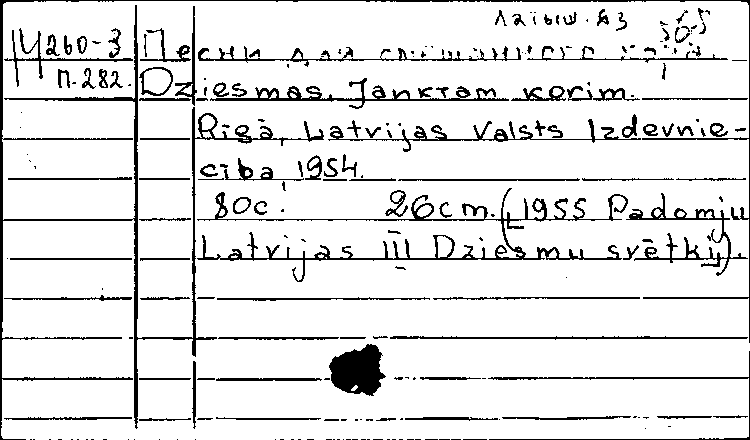 Латыш. яз 50-5
Ч260-3 Песни для смешанного хора.
П.282. Dziesmas. Jauktam korim.
Rīgā, Latvijas Valsts Izdevnie-
cība, 1954.
80c. 26cm. (1955 Padomju
Latvijas III Dziesmu svētki).